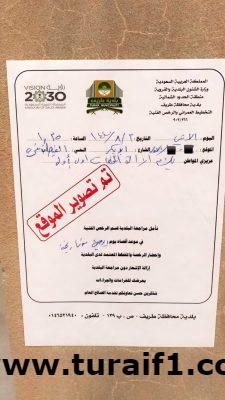 المملكة العربية السعودية
وزارة الشئون البلدية والقروية
منطقة الحدود الشمالية
بلدية محافظة طريف
التخطيط العمراني والرخص الفنية
VISION رؤية
2030
بلدية طريف
اليوم التاريخ الساعة
الموقع الشارع الحي
عزيزي المواطن
تم تصوير الموقع
نأمل مراجعة البلدية قسم الرخص الفنية
في موعد أقصاه يوم
وإحضار الرخصة والمخطط المعتمد لدى البلدية
إزالة الإشعار دون مراجعة البلدية
يعرضك للغرامات والجزاءات
شاكرين حسن تعاونكم لخدمة الصالح العام
بلدية محافظة طريف - ص ب ١٣٩ - تلفون : ٠١٤٦٥٢١٩٤٠
www.turaif1.co